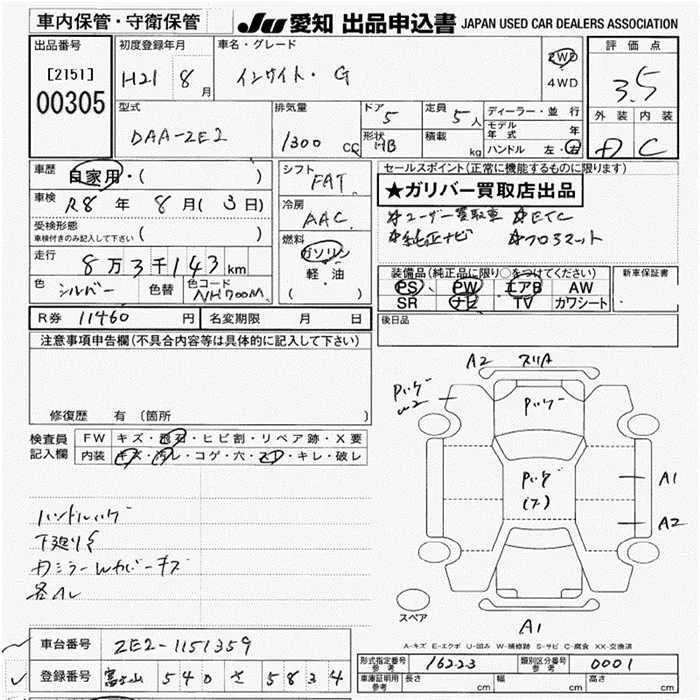 車内保管・守衛保管
JU 愛知 出品申込書 JAPAN USED CAR DEALERS ASSOCIATION
出品番号 [2151] 00305
初度登録年月 H21 8月
車名・グレード インサイト・G
2WD
4WD
評価点 3.5
外装 内装 C
型式 DAA-ZE2
排気量 1300 cc
ドア 5
形状 HB
定員 5人
積載 kg
ディーラー・並行
モデル年式 年
ハンドル 左・右
車歴 自家用・( )
車検 R8年 8月(3日)
受検形態
車検付きのみ記入して下さい ( )
走行 8万3千143km
色 シルバー 色替 色コード NH700M
シフト FAT
冷房 AAC
燃料 ガソリン
軽油
( )
セールスポイント(正常に機能するものに限ります)
★ガリバー買取店出品
☆ユーザー買取車 ☆ETC
☆純正ナビ ☆フロアマット
装備品(純正品に限り○をつけてください)
PS PW エアB AW
SR ナビ TV カワシート
新車保証書
後日品
R券 11460円 名変期限 月 日
注意事項申告欄(不具合内容等は具体的に記入して下さい)
修復歴 有(箇所 )
検査員記入欄
FW キズ・飛石・ヒビ割・リペア跡・X要
内装 キズ・汚レ・コゲ・穴・スレ・キレ・破レ
ハンドルハゲ
下廻りS
各スレ
A2 スリA
Pハゲ
W2
Pハゲ
Pハゲ
(フ)
A1
A2
スペア
A1
A-キズ E-エクボ U-凹み W-補修跡 S-サビ C-腐食 XX-交換済
車台番号 ZE2-1151359
登録番号 富士山 540 さ 5834
形式指定番号 参考 16223
類別区分番号 参考 0001
車庫証明用 参考 長さ cm 幅 cm 高さ cm